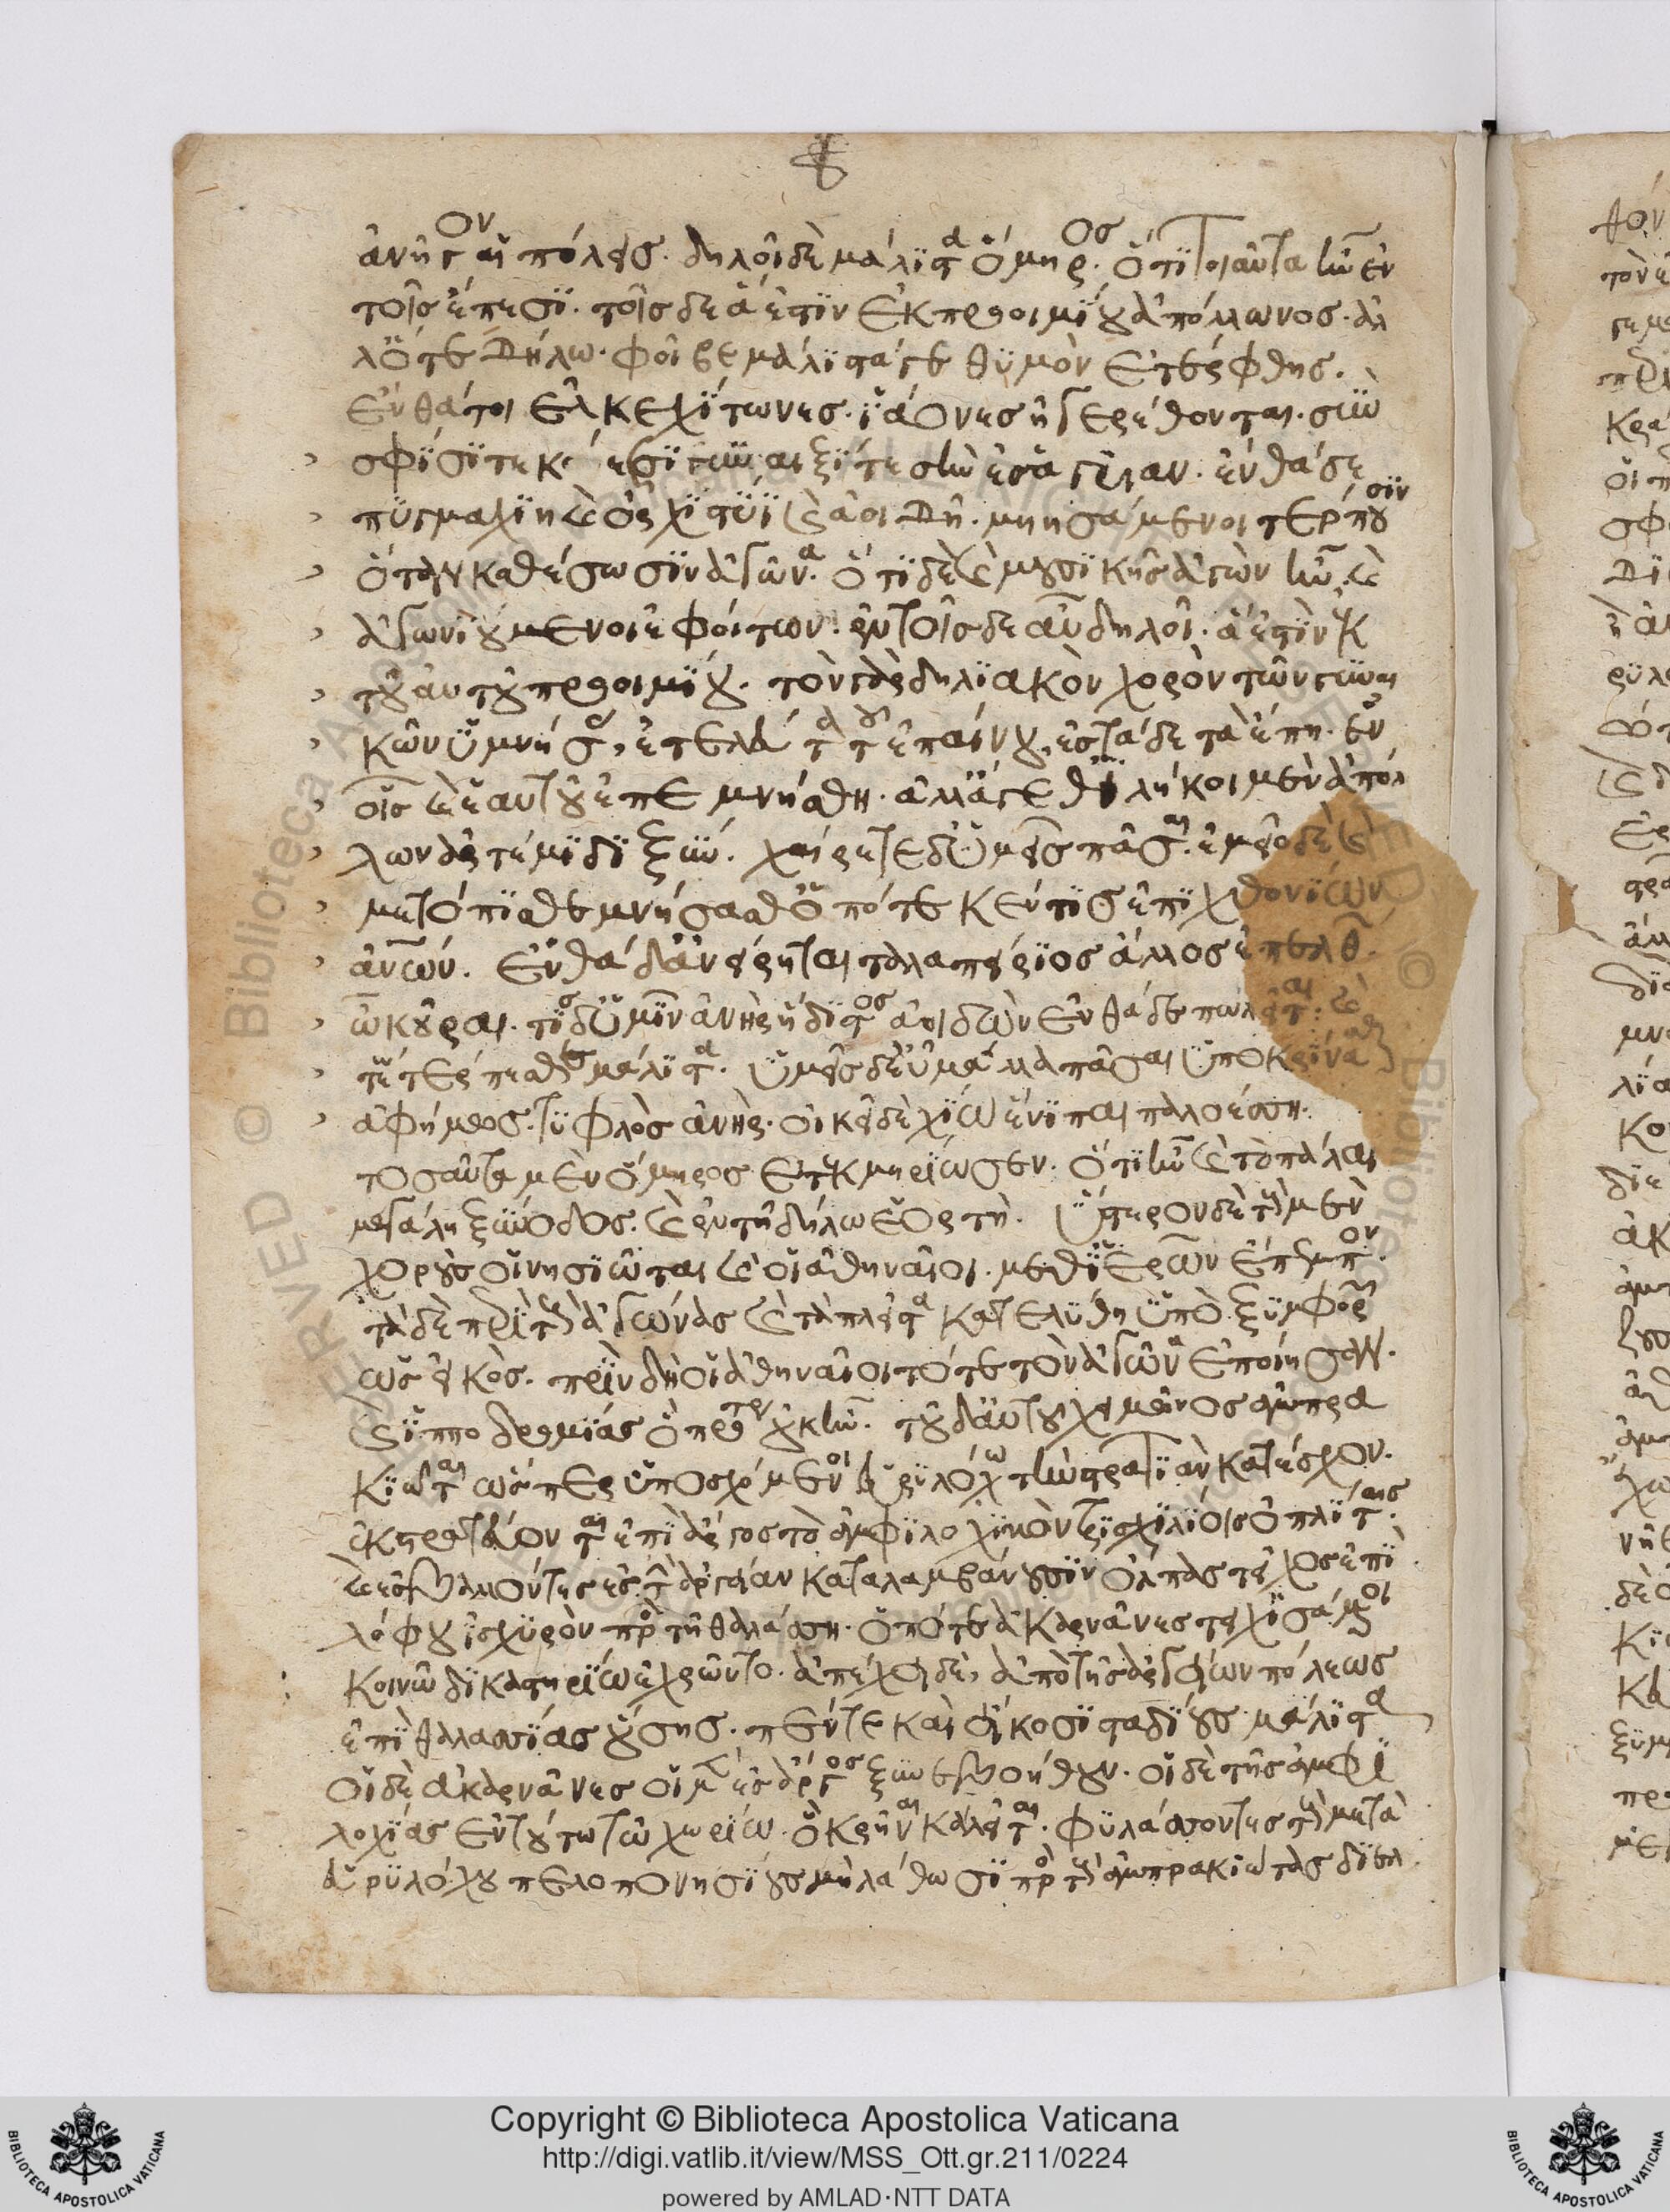 ἀνῆγον αἱ πόλεις. δηλοῖ δὲ μάλιστα ὅμηρος. ὅτι τοιαῦτα ἦν ἐν
τοῖς ἔπεσι. τοῖς δε ἅ ἐστιν ἐκ προοιμίου ἀπόλλωνος. ἀλ
λ' ὅτε Δήλω. φοῖβε μάλιστά γε θυμὸν ἐτέρφθης.
ἔνθά τοι ἑλκεχίτωνες. ἰάονες ἠγερέθονται. σὺν
σφίσί τεκέεσι γυναιξί τε σὴν ἐς ἀγυιαν. ἔνθά σε
πυγμαχίη καὶ ὀρχιστυϊ καὶ ἀοιδῆ. μνησάμενοι τέρπουσιν
ὅταν καθέσωσιν ἀγῶνα. ὅτι δὲ καὶ μουσικῆς ἀγὼν ἦν. καὶ
ἀγωνιούμενοι ἐφοίτων. ἐν τοῖσδε αὖ δηλοῖ. ἅ ἐστὶν ἐκ
τοῦ αὐτοῦ προοιμίου. τὸν γὰρ δηλιακὸν χορὸν τῶν γυναι
κῶν ὑμνήσας, ἐτελεύτα τοῦ ἐπαίνου, ἐς τάδε τὰ ἔπη. ἐν
οἷς καὶ ἑαυτοῦ ἐπεμνήσθη. ἀλλ' ἄγεθ' ἱλήκοι μὲν ἀπόλ
λων ἀρτέμιδι ξύν. χαίρετε δ' ὑμεῖς πᾶσαι. ἐμεῖο δὲ καὶ
μετόπισθε μνήσασθ' ὁππότε κέν τις ἐπιχθονίων
ἀνων. ἐνθάδ' ἀνείρηται ταλαπείριος ἄλλος ἐπελθ.
ὦ κοῦραι. τίς δ' ὕμιν ἀνὴρ ἥδιστος ἀοιδῶν ἐνθάδε πωλεῖται. καὶ
τέω τέρπεσθε μάλιστα. ὑμεῖς δ' εὖ μάλα πᾶσαι ὑποκρίνασθαι
ἀφήμως. τυφλὸς ἀνὴρ. οἰκεῖ δὲ χίω ἔνι παιπαλοέσση.
τοσαῦτα μὲν ὅμηρος ἐτεκμηρίωσεν. ὅτι ἦν καὶ τὸ πάλαι
μεγάλη ξύνοδος. καὶ ἐν τῆ δήλω ἑορτὴ. ὕστερον δὲ τοὺς μὲν
χοροὺς οἱ νησιῶται καὶ οἱ ἀθηναῖοι. μεθ' ἱερῶν ἔπεμπον.
τὰ δὲ περὶ τοὺς ἀγῶνας καὶ τὰ πλεῖστα κατελύθη ὑπὸ ξυμφορῶν
ὡς εἰκὸς. πρὶν δὴ οἱ ἀθηναῖοι τότε τὸν ἀγῶνα ἐποίησαν.
καὶ ἱπποδρομίας ὃ πρότερον οὐκ ἦν. τοῦ δ' αὐτοῦ χειμῶνος ἀμπρα
κιῶται ὥσπερ ὑποσχόμενοι εὐρυλόχω τὴν στρατιὰν κατέσχον.
ἐκστρατεύονται ἐπὶ ἄργος τὸ ἀμφιλοχικὸν τρισχιλίοις ὁπλίταις.
καὶ ἐσβαλόντες ἐς τὴν ἀργείαν καταλαμβάνουσιν ὄλπας τεῖχος ἐπὶ
λόφου ἰσχυρὸν πρὸς τῆ θαλάσση. ὅ ποτε ἀκαρνᾶνες τειχισάμενοι
κοινῶ δικαστηρίω ἐχρῶντο. ἀπέχει δὲ, ἀπὸ τῆς ἀργείων πόλεως
ἐπιθαλασσίας οὔσης. πέντε καὶ εἴκοσι σταδίους μάλιστα
οἱ δὲ ἀκαρνᾶνες οἱ μὲν ἐς ἄργος ξυνεβοήθουν. οἱ δὲ τῆς ἀμφι
λοχίας ἐν τούτω τῶ χωρίω. ὃ κρῆναι καλεῖται. φυλάσσοντες τοὺς μετὰ
εὐρυλόχου πελοποννησίους μὴ λάθωσι πρὸς τοὺς ἀμπρακιώτας διελ
Copyright © Biblioteca Apostolica Vaticana
http://digi.vatlib.it/view/MSS_Ott.gr.211/0224
powered by AMLAD·NTT DATA